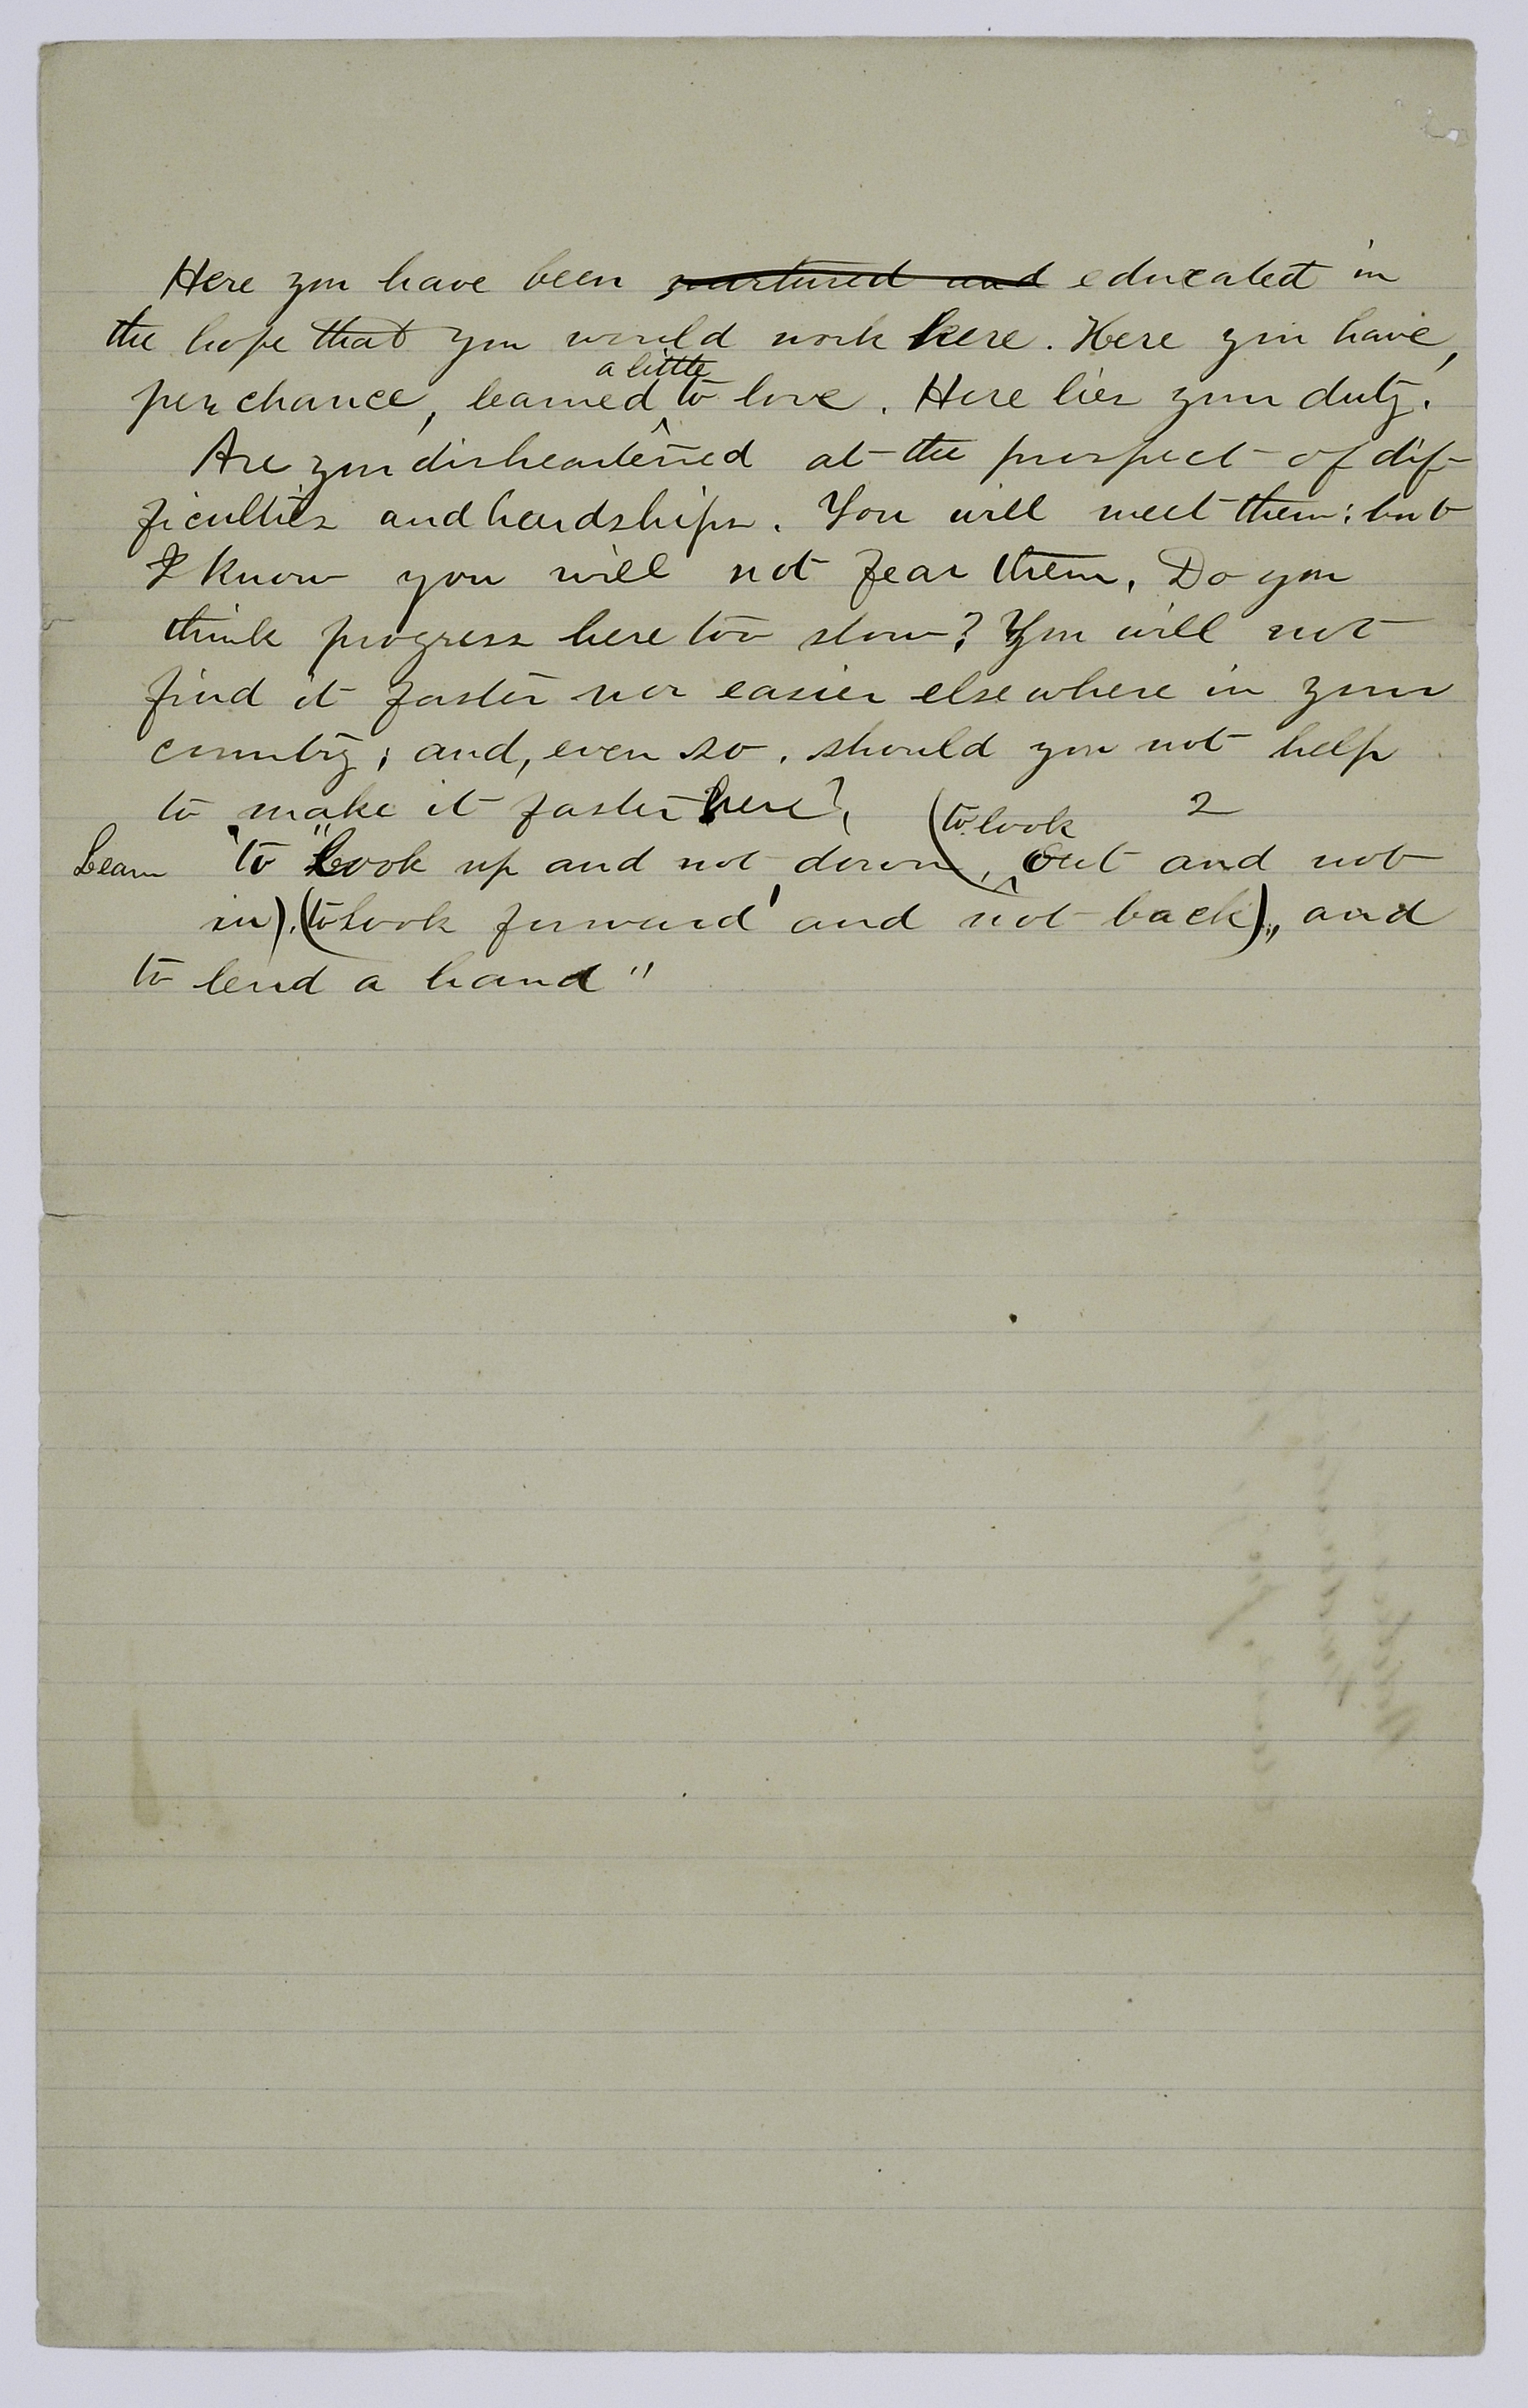 Here you have been nurtured and educated in
the hope that you would work here. Here you have,
perchance, learned a little to love. Here lies your duty.
Are you disheartened at the prospect of dif-
ficulties and hardships. You will meet them; but
I know you will not fear them. Do you
think progress here too slow? You will not
find it faster nor easier elsewhere in your
country; and, even so, should you not help
to make it faster here?
(to look 2
Learn "to look up and not down, out and not
in), (to look forward and not back), and
to lend a hand"